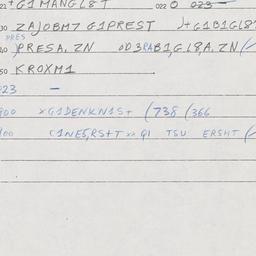 21 + G1 MANGL8T 022 0 023 —
30 ZAJOBM7 G1PREST )+G1B1GL8T
PRES
40 )PRESA, ZN 0D3RAB1,GL8A, ZN (
50 KROXM1
023 —
900 xG1DENKN1S+ (738 (366
400 C1NE5,RS+T x> Q1 TSU ERSHT (